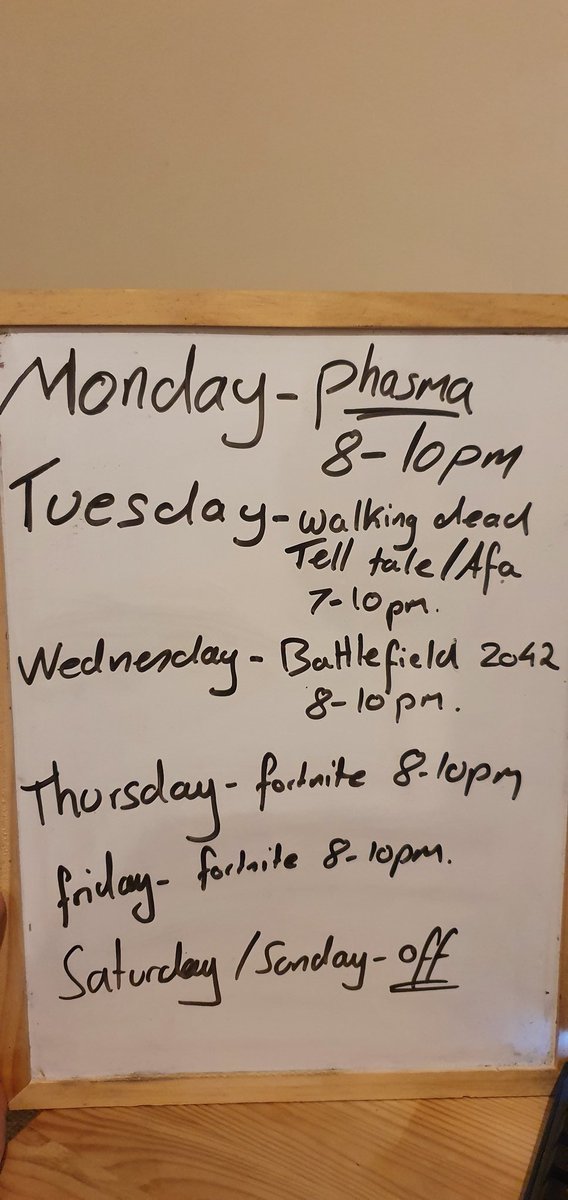 Monday - Phasma
8-10pm
Tuesday - walking dead
Tell tale/Afa
7-10pm.
Wednesday - Battlefield 2042
8-10pm.
Thursday - fortnite 8-10pm
friday - fortnite 8-10pm.
Saturday / Sunday - off